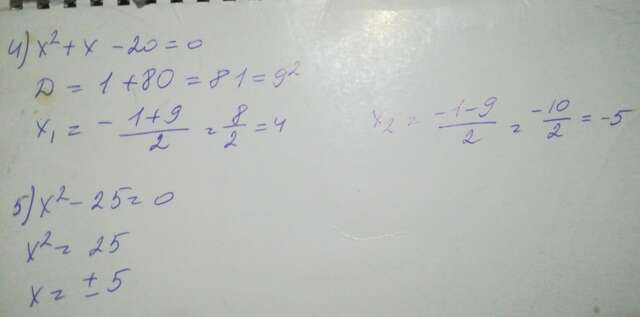 4) x² + x - 20 = 0
D = 1 + 80 = 81 = 9²
x₁ = -1+9/2 = 8/2 = 4 x₂ = -1-9/2 = -10/2 = -5
5) x² - 25 = 0
x² = 25
x = ± 5